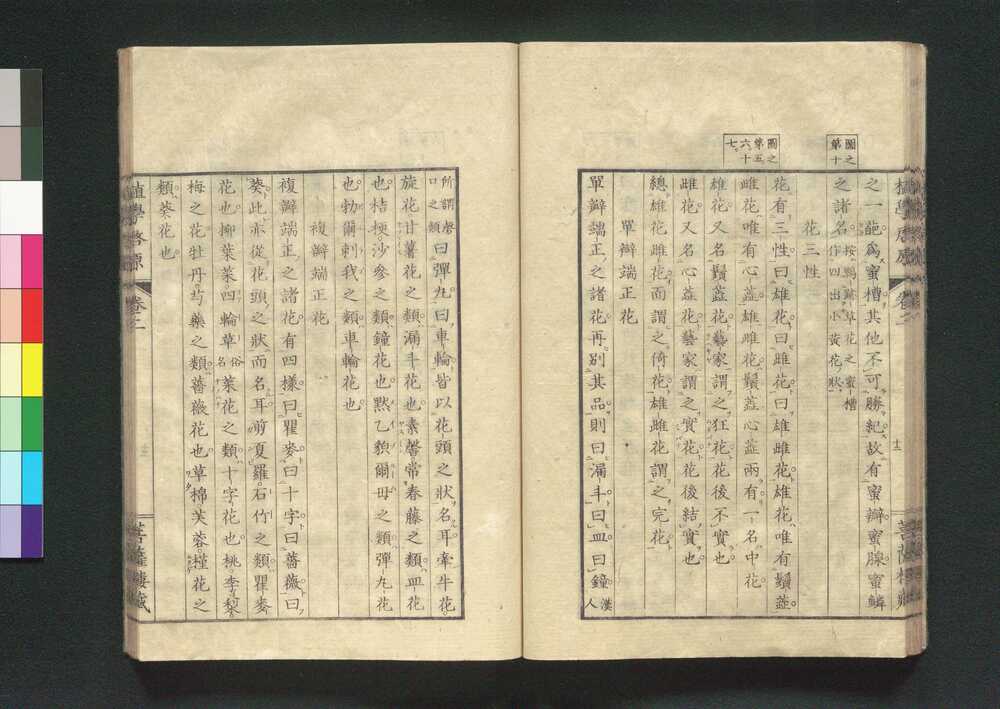 圖之
第十
圖之
第五
六十
七
之一葩爲蜜槽其他不可勝紀故有蜜瓣蜜腺蜜鱗
之諸名按鵝跡草花之蜜槽
作四出小黄花狀
花三性
花有三性曰雄花曰雌花曰雄雌花雄花唯有鬚蕋
雌花唯有心蕋雄雌花鬚蕋心蕋兩有一名中花
雄花又名鬚蕋花藝家謂之狂花花後不實也
雌花又名心蕋花藝家謂之實花花後結實也
總雄花雌花而謂之倚花雄雌花謂之完花
單瓣端正花
單瓣端正之諸花再别其品則曰漏斗曰皿曰鐘漢
人
所謂磬
口之類曰彈丸曰車輪皆以花頭之狀名耳牽牛花
旋花甘薯花之類漏斗花也素馨常春藤之類皿花
也桔梗沙參之類鐘花也默乙貌爾毋之類彈丸花
也勃爾刺我之類車輪花也
複瓣端正花
複瓣端正之諸花有四樣曰瞿麥曰十字曰薔薇曰
葵此亦從花頭之狀而名耳剪夏羅石竹之類瞿麥
花也柳葉菜四輪草俗
名菜花之類十字花也桃李梨
梅之花牡丹芍藥之類薔薇花也草棉芙蓉槿花之
類葵花也
植學啓原
卷之二
菩薩樓藏